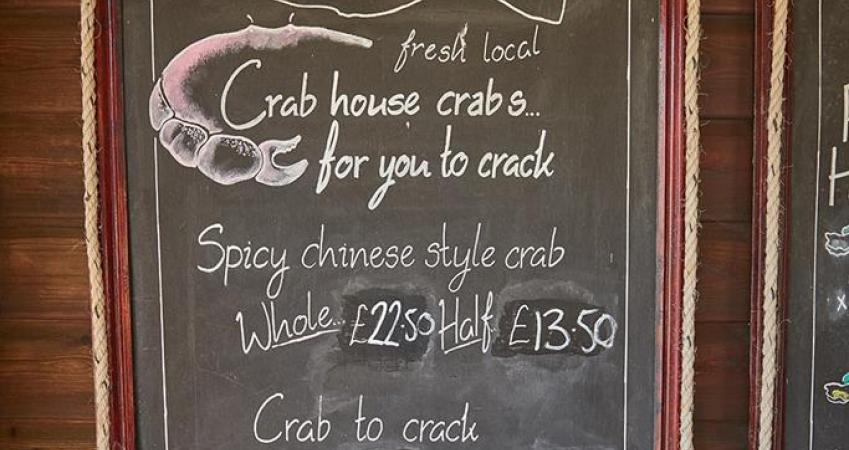 fresh local
Crab house crabs...
for you to crack
Spicy chinese style crab
Whole... £22.50 Half £13.50
Crab to crack